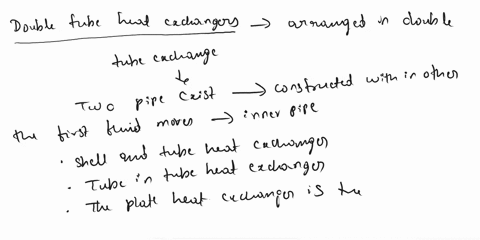 Double tube heat exchangers → arranged in double
tube exchange
↓
Two pipe exist → constructed with in other
the first fluid moves → inner pipe
• Shell and tube heat exchanger
• Tube in tube heat exchanger
• The plate heat exchanger is the